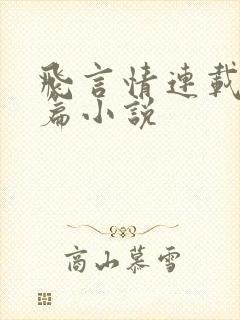 飛言情連載
篇小説
高山慕雪